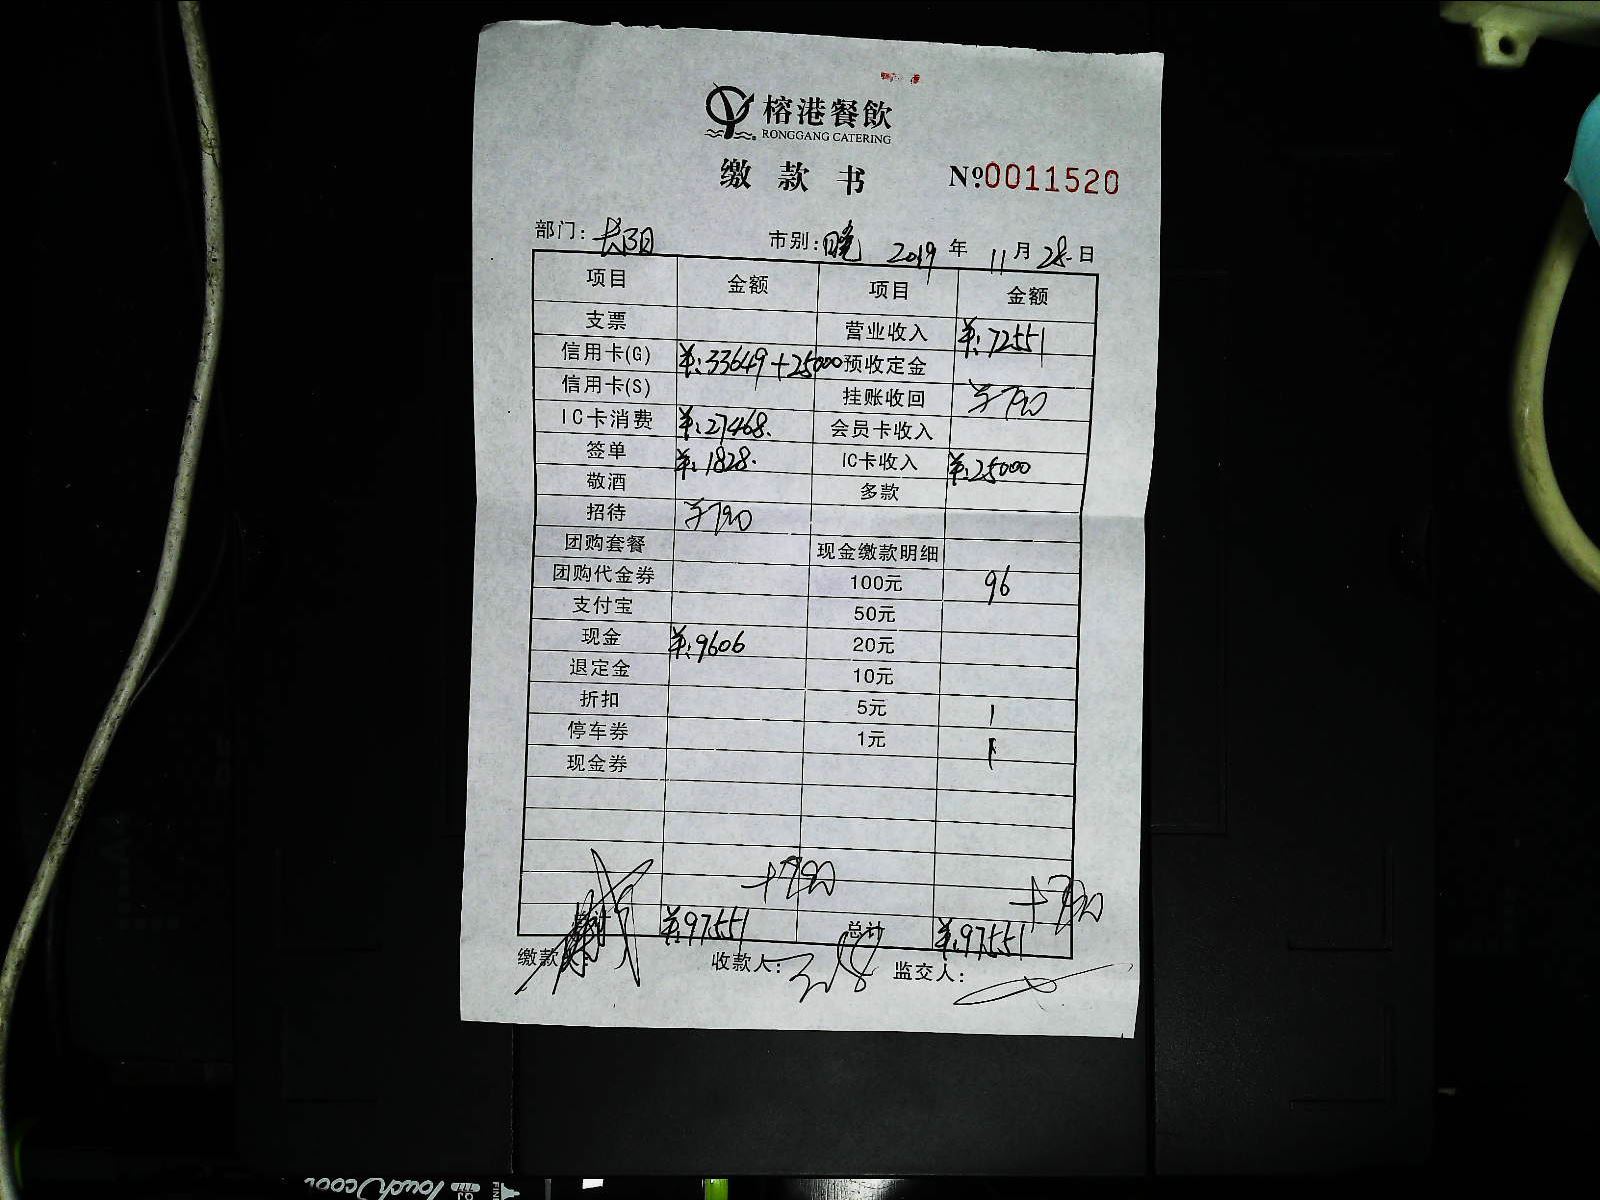 榕港餐飲
RONGGANG CATERING
缴款书 №0011520
部门: 长阳 市别: 晚 2019 年 11 月 28 日
项目 金额 项目 金额
支票 营业收入 ¥:72551
信用卡(G) ¥:33649+25000 预收定金
信用卡(S) 挂账收回 ¥790
IC卡消费 ¥:27468. 会员卡收入
签单 ¥:1828. IC卡收入 ¥:25000
敬酒 多款
招待 ¥790
团购套餐 现金缴款明细
团购代金券 100元 96
支付宝 50元
现金 ¥:9606 20元
退定金 10元
折扣 5元 1
停车券 1元 1
现金券
+790 +790
¥:97551 总计 ¥:97551
缴款 收款人: 监交人:
Touch cool